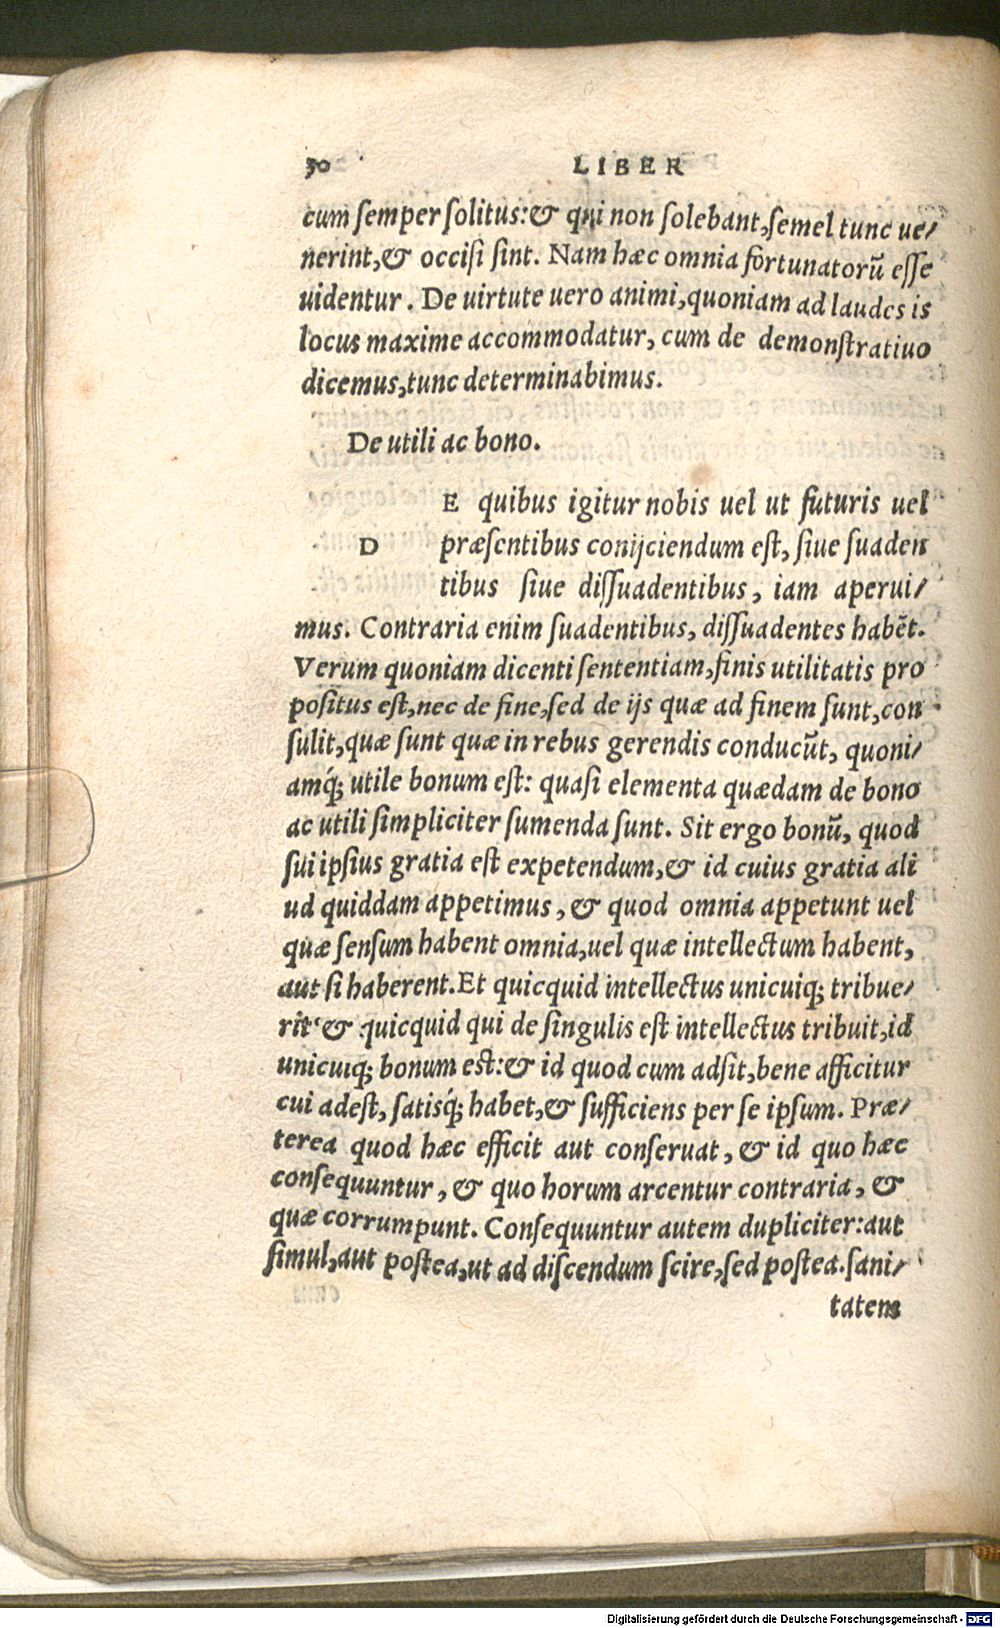 30 LIBER
cum semper solitus: & qui non solebant, semel tunc ue/
nerint, & occisi sint. Nam hæc omnia fortunatorũ esse
uidentur. De uirtute uero animi, quoniam ad laudes is
locus maxime accommodatur, cum de demonstratiuo
dicemus, tunc determinabimus.
De utili ac bono.
E quibus igitur nobis uel ut futuris uel
D præsentibus conijciendum est, siue suaden
tibus siue dissuadentibus, iam aperui/
mus. Contraria enim suadentibus, dissuadentes habẽt.
Verum quoniam dicenti sententiam, finis utilitatis pro
positus est, nec de fine, sed de ijs quæ ad finem sunt, con
sulit, quæ sunt quæ in rebus gerendis conducũt, quoni/
amq́; utile bonum est: quasi elementa quædam de bono
ac utili simpliciter sumenda sunt. Sit ergo bonũ, quod
sui ipsius gratia est expetendum, & id cuius gratia ali
ud quiddam appetimus, & quod omnia appetunt uel
quæ sensum habent omnia, uel quæ intellectum habent,
aut si haberent. Et quicquid intellectus unicuiq; tribue/
rit & quicquid qui de singulis est intellectus tribuit, id
unicuiq; bonum est: & id quod cum adsit, bene afficitur
cui adest, satisq́; habet, & sufficiens per se ipsum. Præ/
terea quod hæc efficit aut conseruat, & id quo hæc
consequuntur, & quo horum arcentur contraria, &
quæ corrumpunt. Consequuntur autem dupliciter: aut
simul, aut postea, ut ad discendum scire, sed postea. sani/
tatem
Digitalisierung gefördert durch die Deutsche Forschungsgemeinschaft - DFG